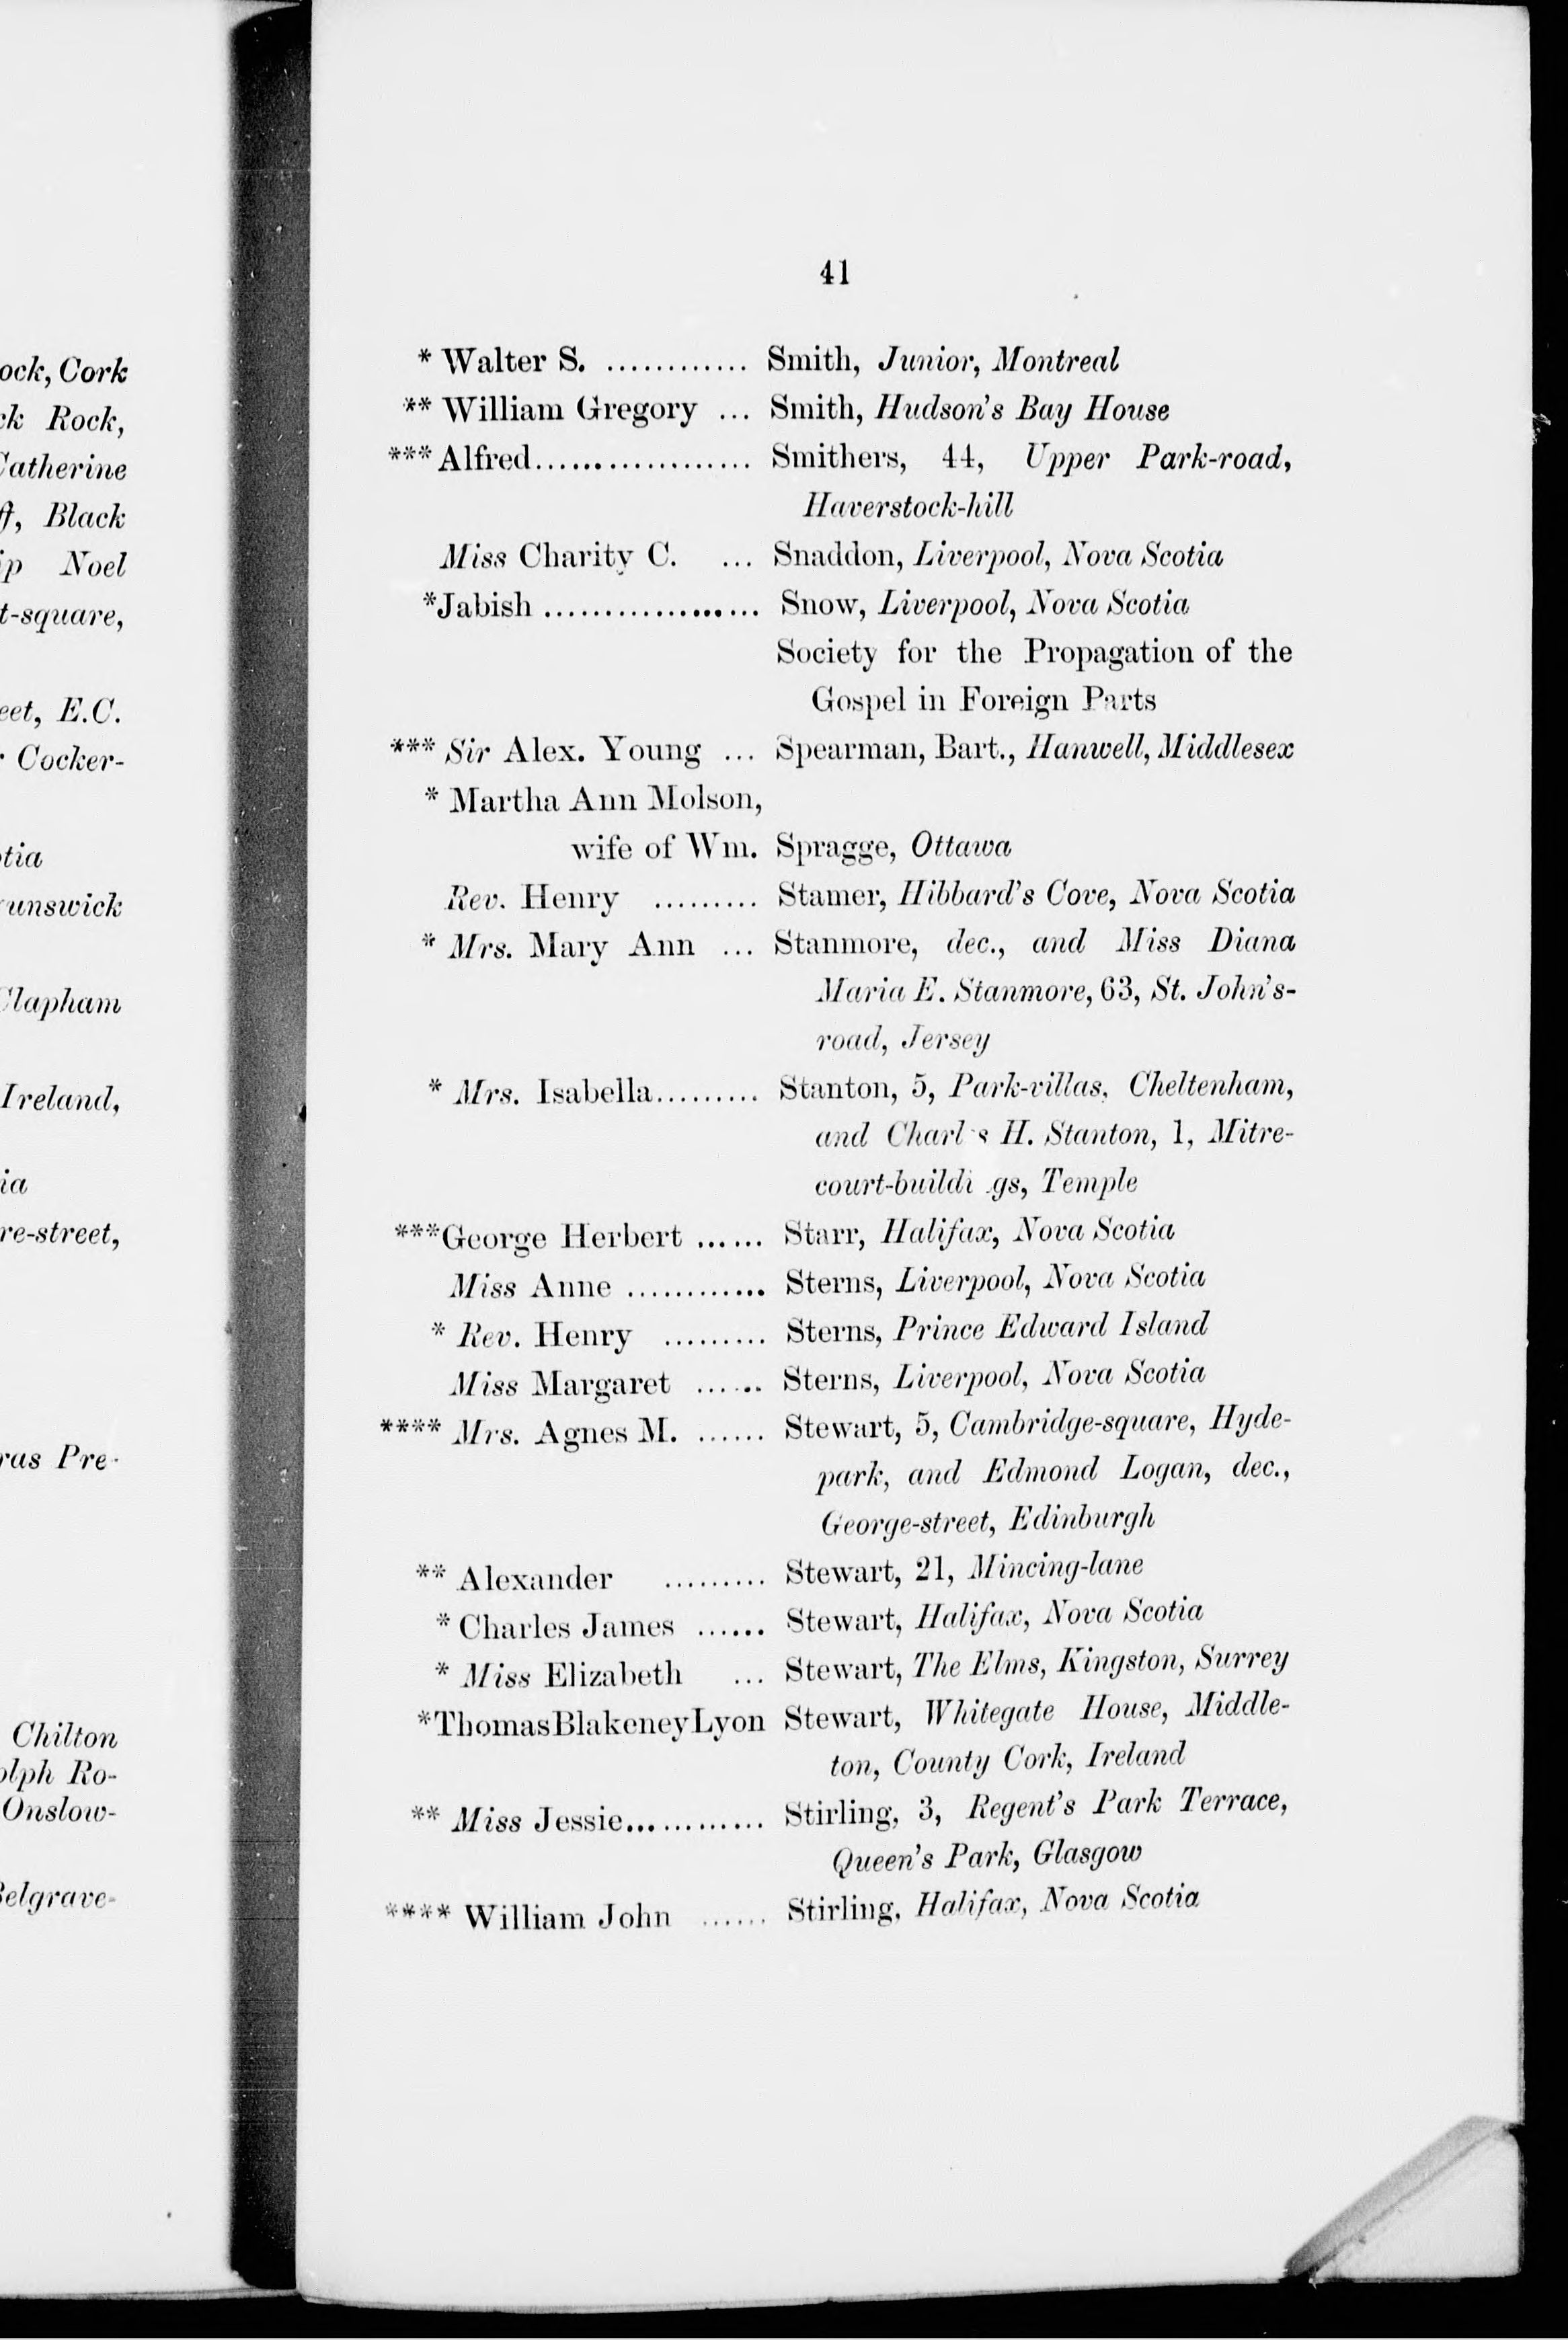 ock, Cork
ck Rock,
Catherine
ff, Black
ip Noel
t-square,
eet, E.C.
Cocker-
tia
unswick
Clapham
Ireland,
ia
re-street,
ras Pre-
Chilton
olph Ro-
Onslow-
Belgrave-
41
* Walter S. ............ Smith, Junior, Montreal
** William Gregory ... Smith, Hudson's Bay House
*** Alfred.................. Smithers, 44, Upper Park-road,
Haverstock-hill
Miss Charity C. ... Snaddon, Liverpool, Nova Scotia
*Jabish .................. Snow, Liverpool, Nova Scotia
Society for the Propagation of the
Gospel in Foreign Parts
*** Sir Alex. Young ... Spearman, Bart., Hanwell, Middlesex
* Martha Ann Molson,
wife of Wm. Spragge, Ottawa
Rev. Henry ......... Stamer, Hibbard's Cove, Nova Scotia
* Mrs. Mary Ann ... Stanmore, dec., and Miss Diana
Maria E. Stanmore, 63, St. John's-
road, Jersey
* Mrs. Isabella......... Stanton, 5, Park-villas, Cheltenham,
and Charl s H. Stanton, 1, Mitre-
court-buildi gs, Temple
***George Herbert ...... Starr, Halifax, Nova Scotia
Miss Anne ............ Sterns, Liverpool, Nova Scotia
* Rev. Henry ......... Sterns, Prince Edward Island
Miss Margaret ...... Sterns, Liverpool, Nova Scotia
**** Mrs. Agnes M. ...... Stewart, 5, Cambridge-square, Hyde-
park, and Edmond Logan, dec.,
George-street, Edinburgh
** Alexander ......... Stewart, 21, Mincing-lane
* Charles James ...... Stewart, Halifax, Nova Scotia
* Miss Elizabeth ... Stewart, The Elms, Kingston, Surrey
*Thomas Blakeney Lyon Stewart, Whitegate House, Middle-
ton, County Cork, Ireland
** Miss Jessie............ Stirling, 3, Regent's Park Terrace,
Queen's Park, Glasgow
**** William John ...... Stirling, Halifax, Nova Scotia